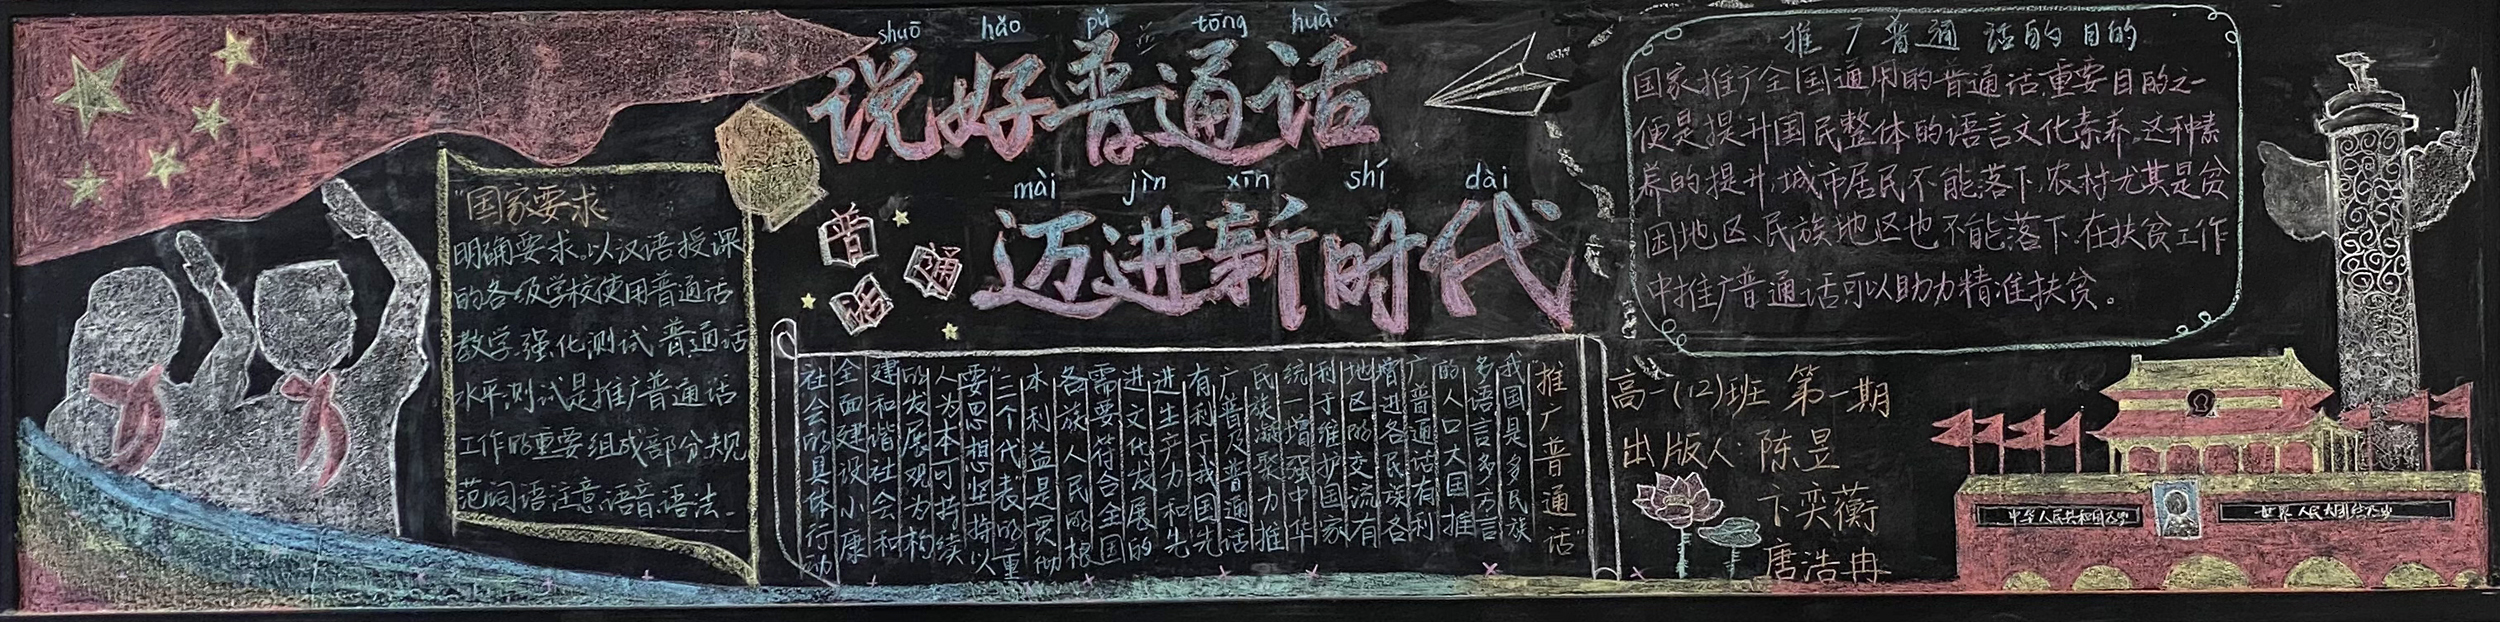 shuō hǎo pǔ tōng huà
说好普通话
mài jìn xīn shí dài
迈进新时代
普
通
话
"国家要求
明确要求。以汉语授课
的各级学校使用普通话
教学.强化测试.普通话
水平.测试是推广普通话
工作的重要组成部分.规
范词语注意.语音.语法.
"推广普通话"
我国是多民族
多语言多方言
的人口大国推
广普通话有利
增进各民族各
地区的交流有
利于维护国家
统一增强中华
民族凝聚力推
广普及普通话
有利于我国先
进生产力和先
进文化发展的
需要符合全国
各族人民的根
本利益是贯彻
"三个代表"的重
要思想坚持以
人为本可持续
的发展观为构
建和谐社会和
全面建设小康
社会的具体行动
推广普通话的目的
国家推广全国通用的普通话.重要目的之一
便是提升国民整体的语言文化素养.这种素
养的提升,城市居民不能落下,农村尤其是贫
困地区、民族地区也不能落下.在扶贫工作
中推广普通话可以助力精准扶贫。
高一(12)班 第一期
出版人:陈昱
卞奕蘅
唐浩冉
中华人民共和国万岁
世界人民大团结万岁